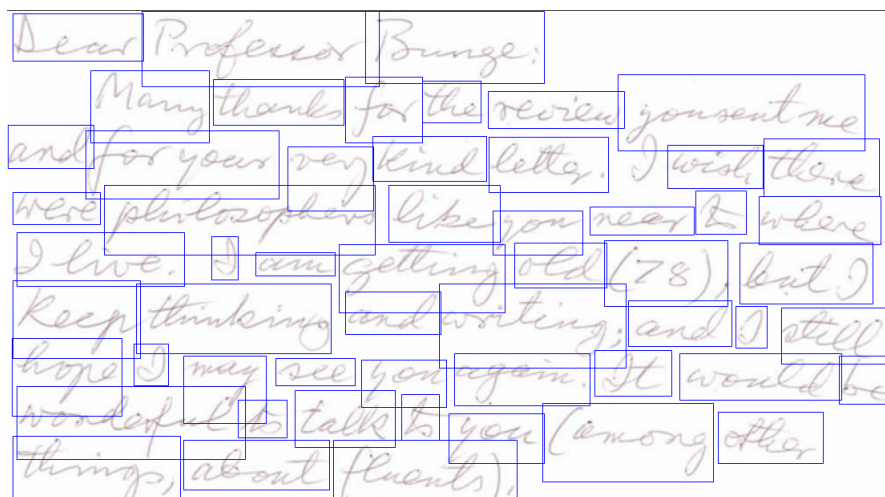 Dear Professor Bunge:
Many thanks for the review you sent me
and for your very kind letter. I wish there
were philosophers like you near to where
I live. I am getting old (78), but I
keep thinking and writing; and I still
hope I may see you again. It would be
wonderful to talk to you (among other
things, about fluents).